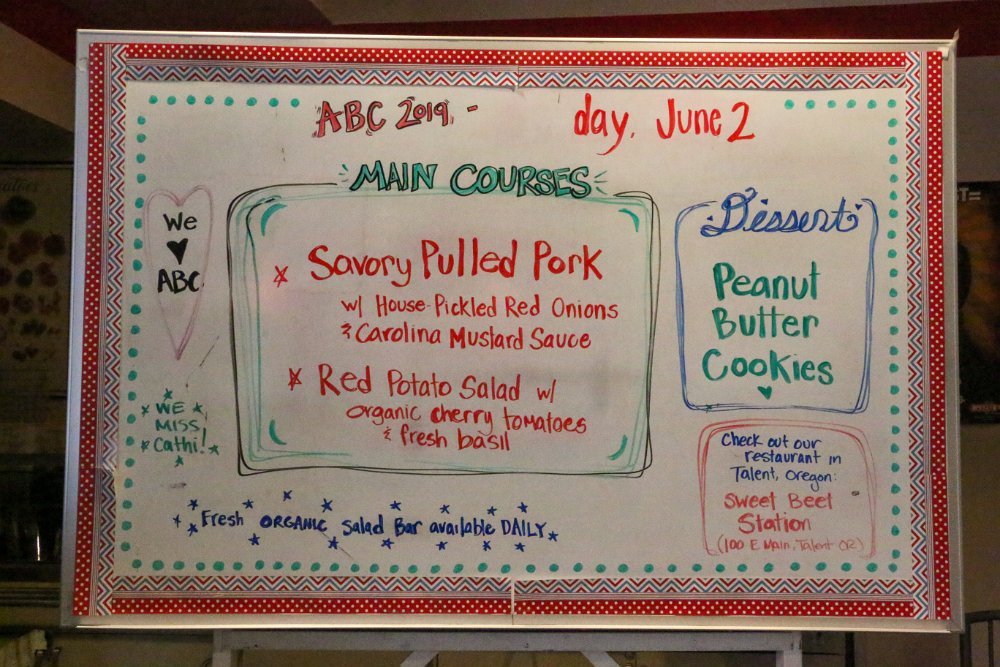 ABC 2019 - day, June 2
MAIN COURSES
Savory Pulled Pork
w/ House-Pickled Red Onions
& Carolina Mustard Sauce
Red Potato Salad w/
organic cherry tomatoes
& fresh basil
We
♥
ABC
WE
MISS
Cathi!
Dessert
Peanut
Butter
Cookies
♥
Check out our
restaurant in
Talent, Oregon:
Sweet Beet
Station
(100 E Main, Talent OR)
Fresh ORGANIC Salad Bar available DAILY